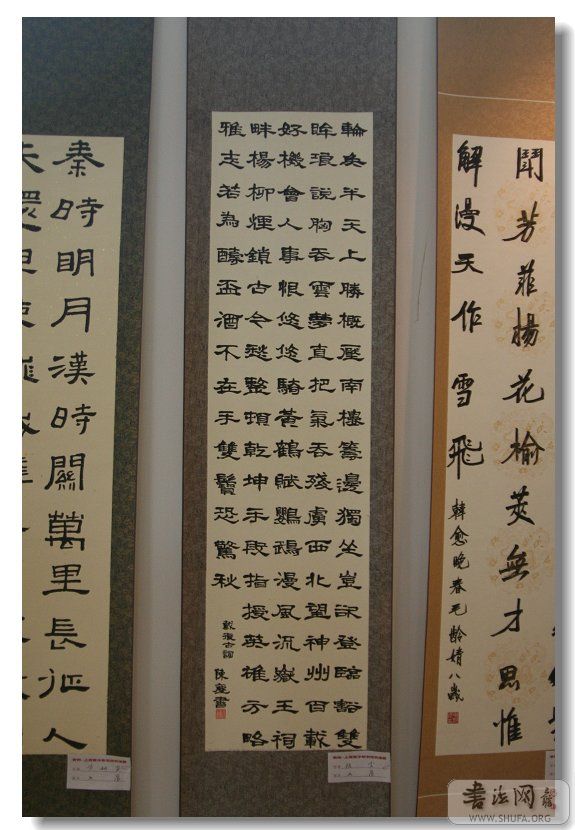 鬥芳菲楊花榆莢無才思惟
解漫天作雪飛
韓愈晚春毛齡婧八歲
輪奐半天上勝概壓南樓籌邊獨坐豈欲登臨豁雙
眸浪說胸吞雲夢直把氣吞殘虜西北望神州百載
好機會人事恨悠悠騎黃鶴賦鸚鵡漫風流嶽王祠
畔楊柳煙鎖古今愁整頓乾坤手段指授英雄方略
雅志若為醻盃酒不在手雙鬢恐驚秋
戴復古詞
陳書
秦時明月漢時關萬里長征人
书法网
WWW.SHUFA.ORG